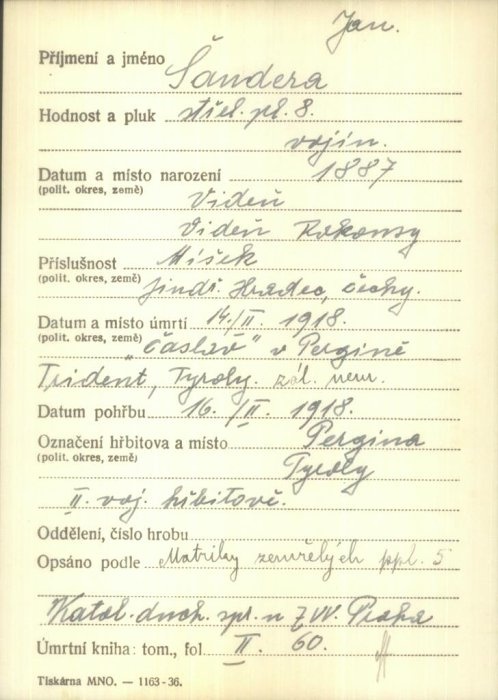 Jan.
Příjmení a jméno Šandera
Hodnost a pluk střel. pl. 8.
vojín.
Datum a místo narození 1887
(polit. okres, země) Videň
Videň Rakousy
Příslušnost Míšek
(polit. okres, země) Jindř. Hradec, Čechy.
Datum a místo úmrtí 14./II. 1918.
(polit. okres, země) „Čáslav" v Pergině
Trident, Tyroly. zál. nem.
Datum pohřbu 16./II. 1918.
Označení hřbitova a místo Pergina
(polit. okres, země) Tyroly
II. voj. hřbitově.
Oddělení, číslo hrobu
Opsáno podle Matriky zemřelých ppl. 5
Katol. duch. spr. u ZVV. Praha
Úmrtní kniha: tom., fol II. 60.
Tiskárna MNO. — 1163-36.